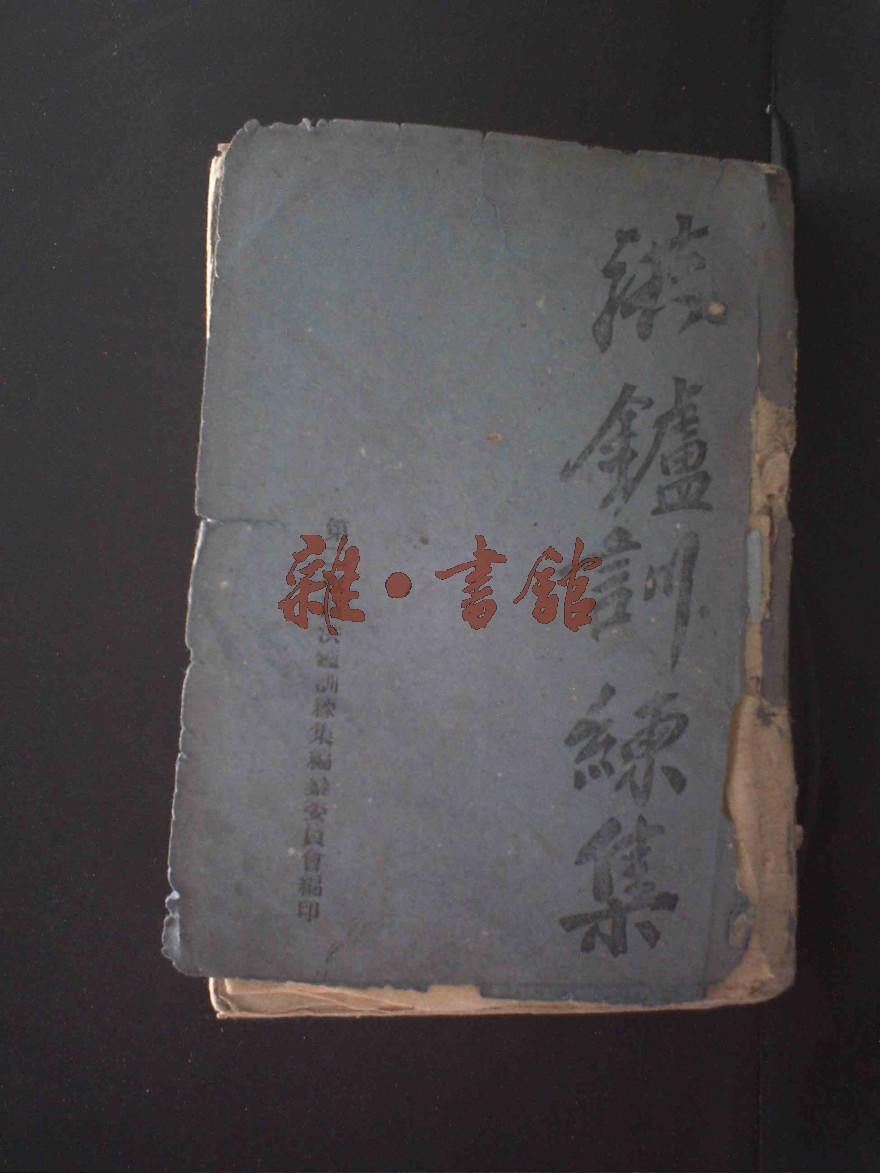 洪鑪訓練集
雜•書館
第 洪鑪訓練集編纂委員會編印